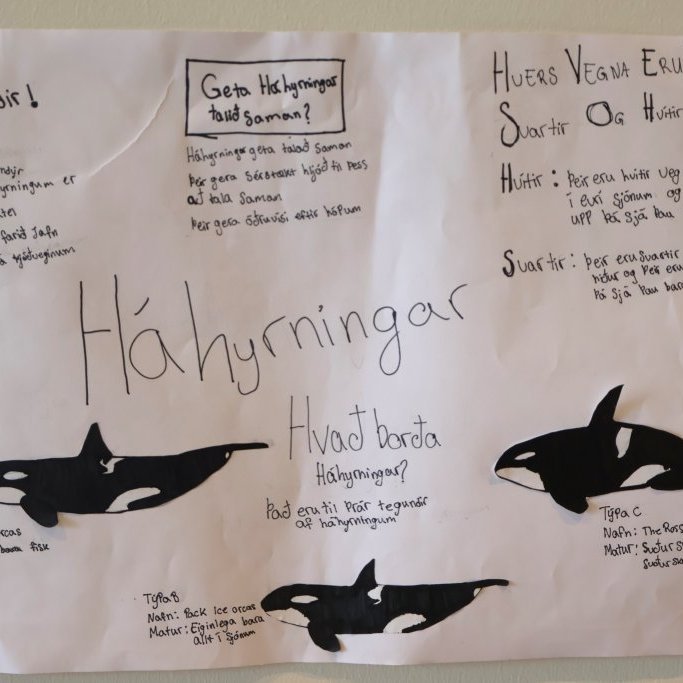 dir!
ndýr
yrningum er
farið Jafn
á sjóðveginum
Geta Háhyrningar
talið saman?
Háhyrningar geta talað saman
Þeir gera sérstakt hljóð til þess
að tala saman
Þeir gera öðruvísi eftir hópum
HVERS VEGNA ERU
SVARTIR OG HVÍTIR
HVÍTIR: Þeir eru hvitir veg
í eurí sjónum og
upp þá sjá þau
SVARTIR: Þeir eru svartir
niður og þeir eru
þá sjá þau bara
Háhyrningar
Hvað borða
Háhyrningar?
Það eru til þrár tegundir
af háhyrningum
orcas
bara fisk
Týpa B
Nafn: Pack Ice orcas
Matur: Eiginlega bara
allt í sjónum
Týpa C
Nafn: The Ross
Matur: Suður s
suður s